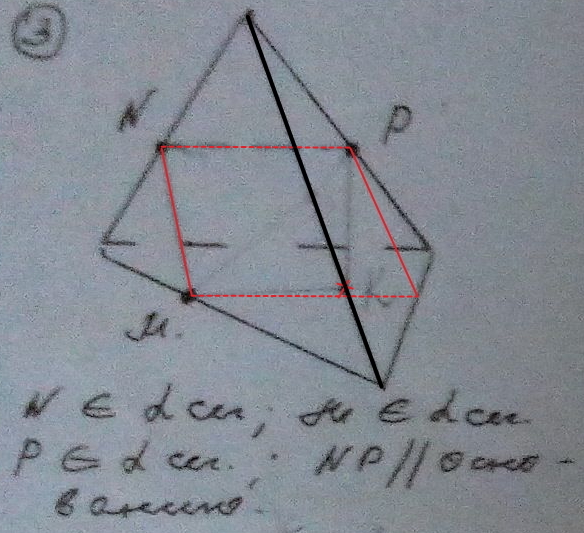 3
N P
K
М.
N ∈ α сеч; М ∈ α сеч.
P ∈ α сеч.; NP // осно-
ванию.